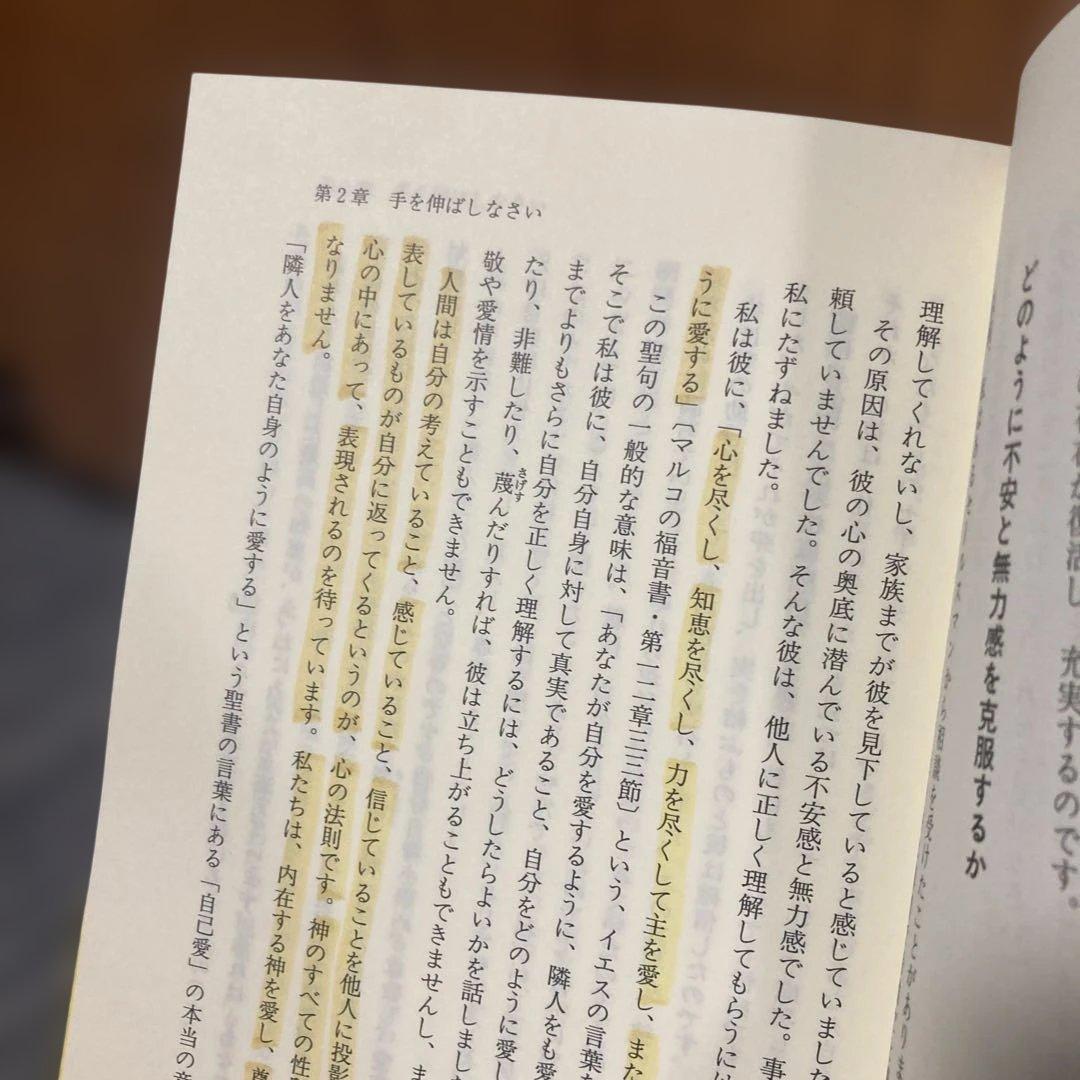 第2章 手を伸ばしなさい
充実するのです。
どのように不安と無力感を克服するか
理解してくれないし、家族までが彼を見下していると感じていました
その原因は、彼の心の奥底に潜んでいる不安感と無力感でした。事
頼していませんでした。そんな彼は、他人に正しく理解してもらうには
私にたずねました。
私は彼に、「心を尽くし、知恵を尽くし、力を尽くして主を愛し、また
うに愛する」〔マルコの福音書・第一二章三三節〕という、イエスの言葉を
この聖句の一般的な意味は、「あなたが自分を愛するように、隣人をも愛
そこで私は彼に、自分自身に対して真実であること、自分をどのように愛し
までよりもさらに自分を正しく理解するには、どうしたらよいかを話しました
たり、非難したり、蔑んだりすれば、彼は立ち上がることもできませんし、ま
さげす
敬や愛情を示すこともできません。
人間は自分の考えていること、感じていること、信じていることを他人に投影
表しているものが自分に返ってくるというのが、心の法則です。神のすべての性
心の中にあって、表現されるのを待っています。私たちは、内在する神を愛し、尊
なりません。
「隣人をあなた自身のように愛する」という聖書の言葉にある「自己愛」の本当の意